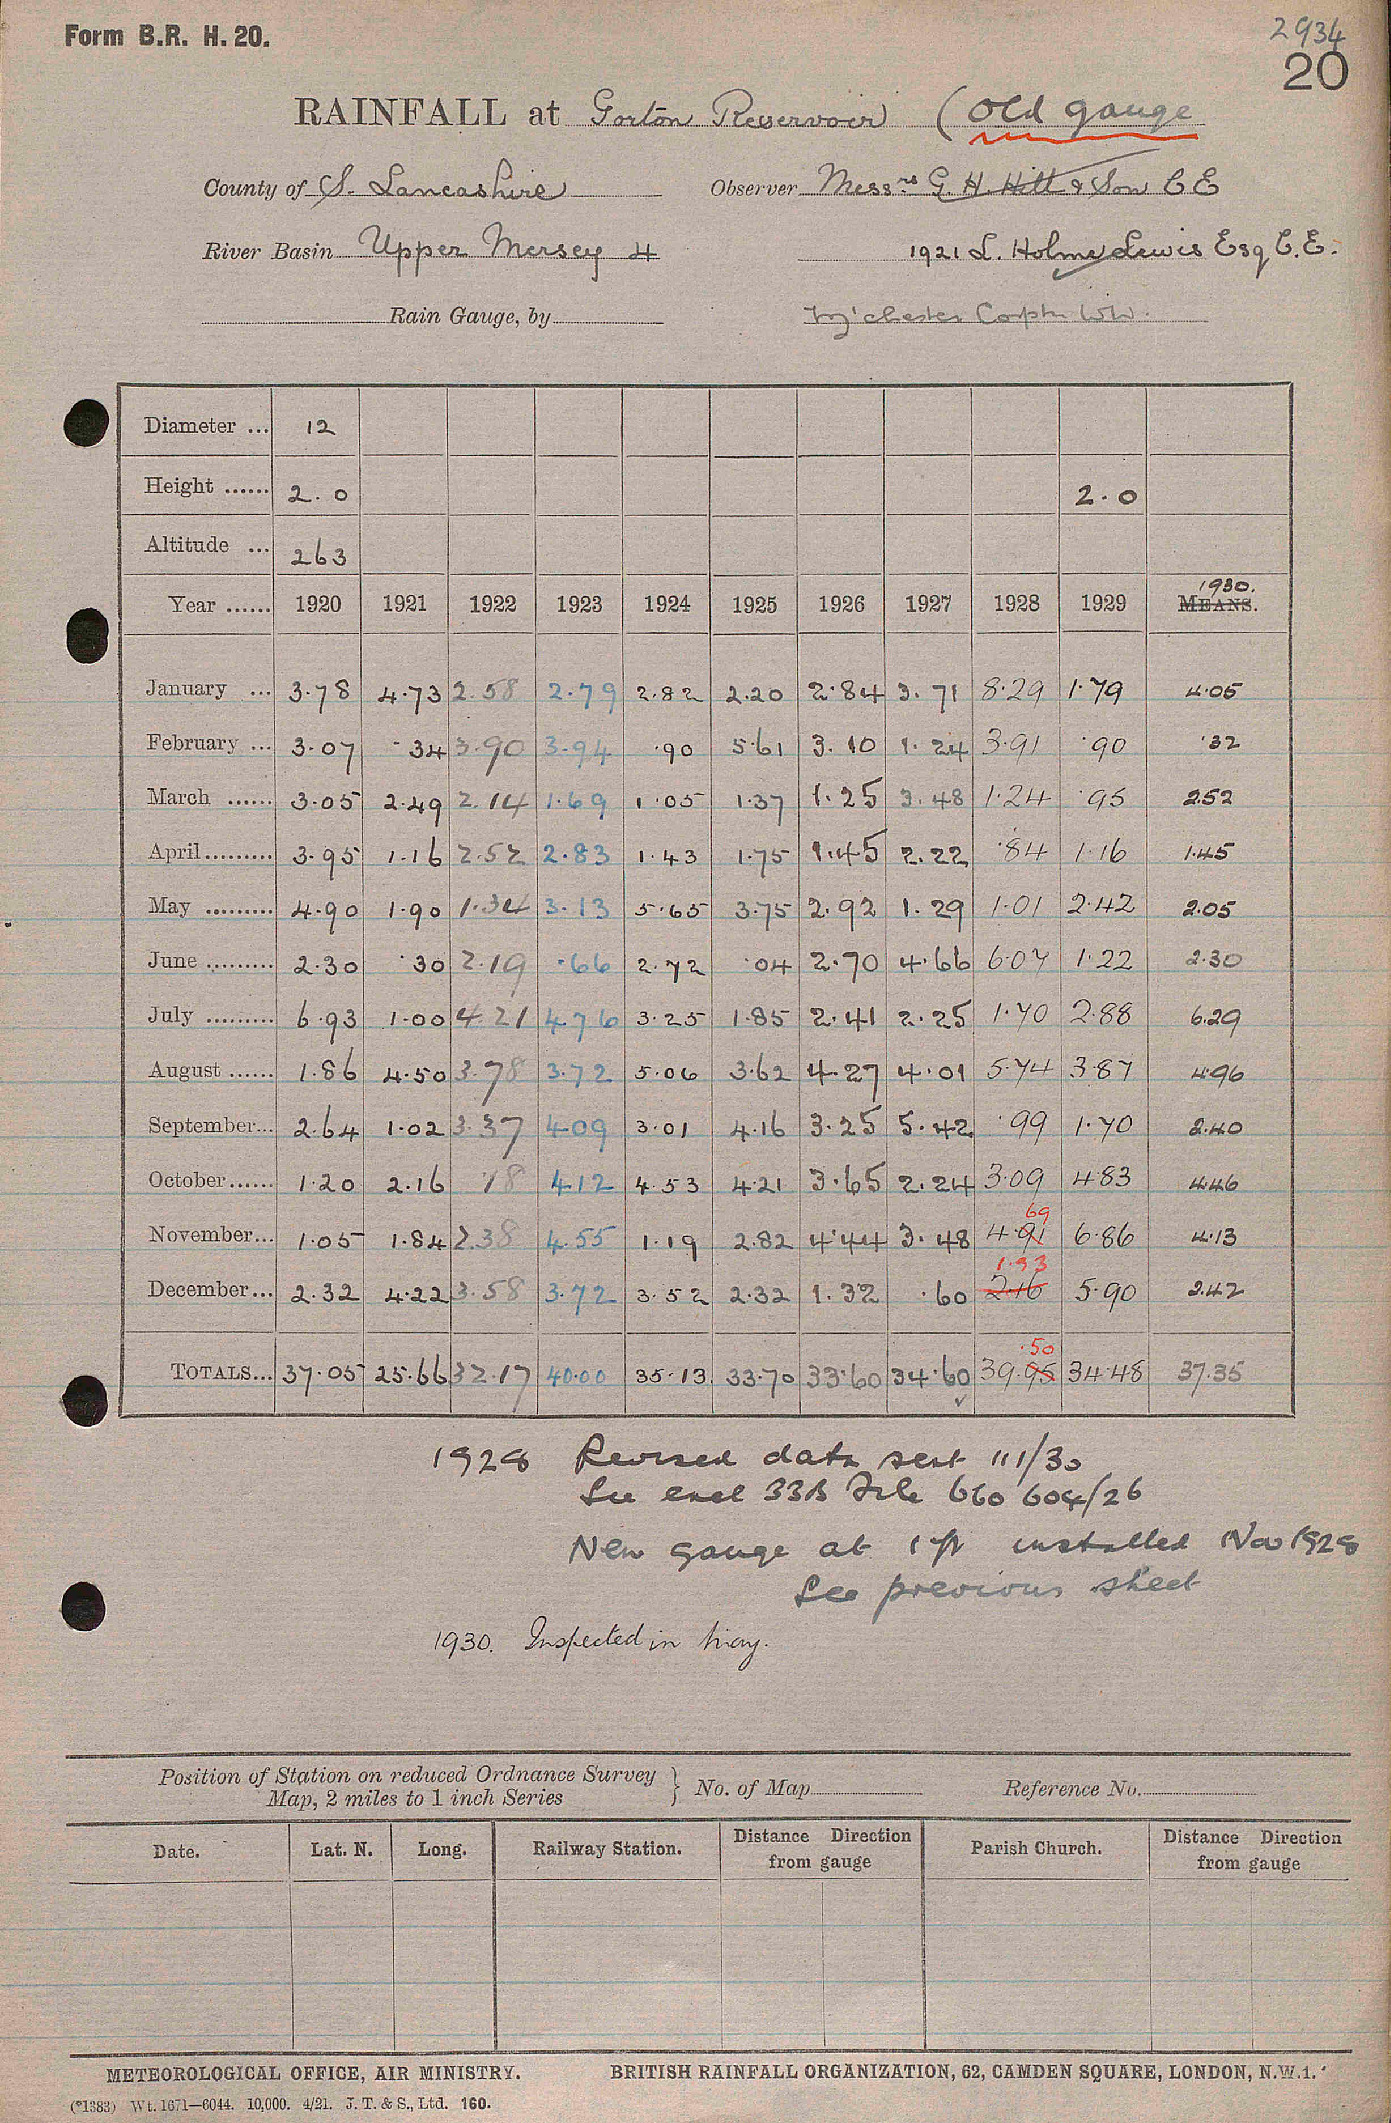 Form B.R. H. 20.
2934
20
RAINFALL at Gorton Reservoir (Old gauge
County of S. Lancashire Observer Messrs G. H. Hill & Son C E
River Basin Upper Mersey 4 1921 L. Holme Lewis Esq C.E.
Rain Gauge, by M'chester Corptn WW.
Diameter ... 12
Height ...... 2.0 2.0
Altitude ... 263
1930.
Year ...... 1920 1921 1922 1923 1924 1925 1926 1927 1928 1929 MEANS.
January ... 3.78 4.73 2.58 2.79 2.82 2.20 2.84 3.71 8.29 1.79 4.05
February ... 3.07 .34 3.90 3.94 .90 5.61 3.10 1.24 3.91 .90 .32
March ...... 3.05 2.49 2.14 1.69 1.05 1.37 1.25 3.48 1.24 .95 2.52
April......... 3.95 1.16 2.52 2.83 1.43 1.75 1.45 2.22 .84 1.16 1.45
May ......... 4.90 1.90 1.34 3.13 5.65 3.75 2.92 1.29 1.01 2.42 2.05
June ......... 2.30 .30 2.19 .66 2.72 .04 2.70 4.66 6.07 1.22 2.30
July ......... 6.93 1.00 4.21 4.76 3.25 1.85 2.41 2.25 1.70 2.88 6.29
August ...... 1.86 4.50 3.78 3.72 5.06 3.62 4.27 4.01 5.74 3.87 4.96
September... 2.64 1.02 3.37 4.09 3.01 4.16 3.25 5.42 .99 1.70 2.40
October...... 1.20 2.16 18 4.12 4.53 4.21 3.65 2.24 3.09 4.83 4.46
69
November... 1.05 1.84 2.38 4.55 1.19 2.82 4.44 3.48 4.91 6.86 4.13
1.93
December... 2.32 4.22 3.58 3.72 3.52 2.32 1.32 .60 2.16 5.90 2.42
.50
TOTALS... 37.05 25.66 32.17 40.00 35.13 33.70 33.60 34.60 39.95 34.48 37.35
1928 Revised data sent 1/1/30
See encl 33B File 660604/26
New gauge at 1 ft installed Nov 1928
See previous sheet
1930. Inspected in May.
Position of Station on reduced Ordnance Survey
Map, 2 miles to 1 inch Series } No. of Map Reference No.
Date. Lat. N. Long. Railway Station. Distance Direction from gauge Parish Church. Distance Direction from gauge
METEOROLOGICAL OFFICE, AIR MINISTRY. BRITISH RAINFALL ORGANIZATION, 62, CAMDEN SQUARE, LONDON, N.W.1.
(*1383) Wt. 1671—6044. 10,000. 4/21. J. T. & S., Ltd. 160.